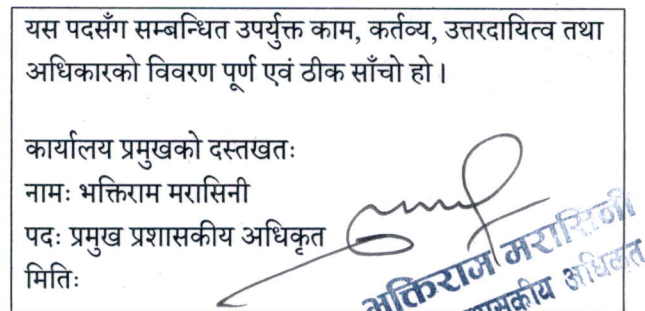 यस पदसँग सम्बन्धित उपर्युक्त काम, कर्तव्य, उत्तरदायित्व तथा
अधिकारको विवरण पूर्ण एवं ठीक साँचो हो ।
कार्यालय प्रमुखको दस्तखतः
नामः भक्तिराम मरासिनी
पदः प्रमुख प्रशासकीय अधिकृत
मितिः
भक्तिराज मरासिनी
अधिकृत